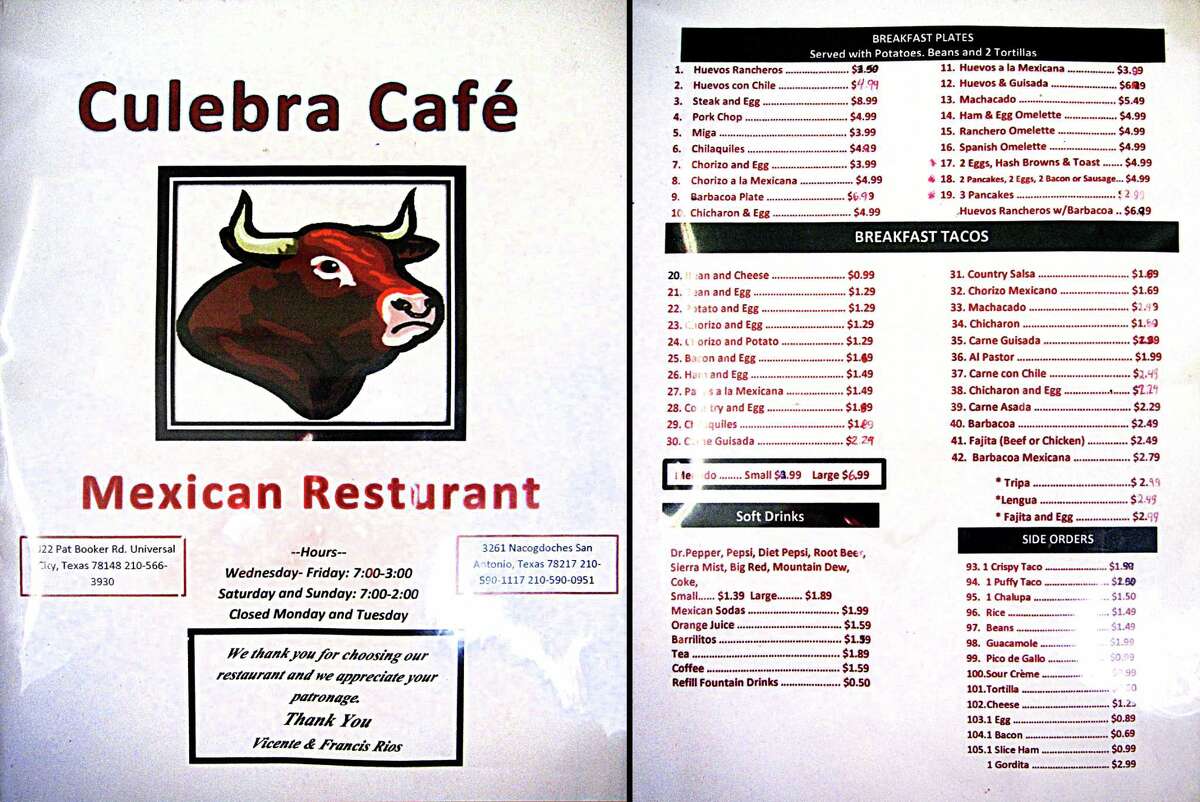 Culebra Café
Mexican Resturant
22 Pat Booker Rd. Universal
City, Texas 78148 210-566-
3930
--Hours--
Wednesday- Friday: 7:00-3:00
Saturday and Sunday: 7:00-2:00
Closed Monday and Tuesday
3261 Nacogdoches San
Antonio, Texas 78217 210-
590-1117 210-590-0951
We thank you for choosing our
restaurant and we appreciate your
patronage.
Thank You
Vicente & Francis Rios
BREAKFAST PLATES
Served with Potatoes. Beans and 2 Tortillas
1. Huevos Rancheros ........ $3.50
2. Huevos con Chile ........ $4.99
3. Steak and Egg ........ $8.99
4. Pork Chop ........ $4.99
5. Miga ........ $3.99
6. Chilaquiles ........ $4.99
7. Chorizo and Egg ........ $3.99
8. Chorizo a la Mexicana ........ $4.99
9. Barbacoa Plate ........ $6.99
10. Chicharon & Egg ........ $4.99
11. Huevos a la Mexicana ........ $3.99
12. Huevos & Guisada ........
13. Machacado ........ $5.49
14. Ham & Egg Omelette ........ $4.99
15. Ranchero Omelette ........ $4.99
16. Spanish Omelette ........ $4.99
* 17. 2 Eggs, Hash Browns & Toast ...... $4.99
* 18. 2 Pancakes, 2 Eggs, 2 Bacon or Sausage... $4.99
* 19. 3 Pancakes ........ $2.99
Huevos Rancheros w/Barbacoa .. $6.99
BREAKFAST TACOS
20. Bean and Cheese ........ $0.99
21. Bean and Egg ........ $1.29
22. Potato and Egg ........ $1.29
23. Chorizo and Egg ........ $1.29
24. Chorizo and Potato ........ $1.29
25. Bacon and Egg ........ $1.69
26. Ham and Egg ........ $1.49
27. Papas a la Mexicana ........ $1.49
28. Country and Egg ........
29. Chilaquiles ........
30. Carne Guisada ........ $2.29
31. Country Salsa ........ $1.69
32. Chorizo Mexicano ........ $1.69
33. Machacado ........
34. Chicharon ........
35. Carne Guisada ........
36. Al Pastor ........ $1.99
37. Carne con Chile ........ $2.49
38. Chicharon and Egg ........ $2.29
39. Carne Asada ........ $2.29
40. Barbacoa ........ $2.49
41. Fajita (Beef or Chicken) ........ $2.49
42. Barbacoa Mexicana ........ $2.79
* Tripa ........ $2.99
*Lengua ........ $2.99
* Fajita and Egg ........ $2.99
Menudo ........ Small $3.99 Large $6.99
Soft Drinks
Dr.Pepper, Pepsi, Diet Pepsi, Root Beer,
Sierra Mist, Big Red, Mountain Dew,
Coke,
Small...... $1.39 Large......... $1.89
Mexican Sodas ........ $1.99
Orange Juice ........ $1.59
Barrilitos ........ $1.59
Tea ........ $1.89
Coffee ........ $1.59
Refill Fountain Drinks ........ $0.50
SIDE ORDERS
93. 1 Crispy Taco ........
94. 1 Puffy Taco ........
95. 1 Chalupa ........ $1.50
96. Rice ........ $1.49
97. Beans ........ $1.49
98. Guacamole ........ $1.99
99. Pico de Gallo ........ $0.99
100.Sour Crème ........
101.Tortilla ........
102.Cheese ........
103.1 Egg ........ $0.89
104.1 Bacon ........ $0.69
105.1 Slice Ham ........ $0.99
1 Gordita ........ $2.99